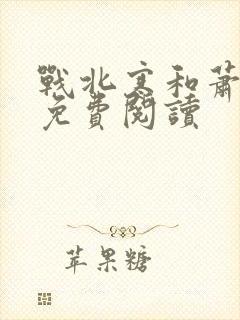 戰北寒和蕭
免費閱讀
苹果糖